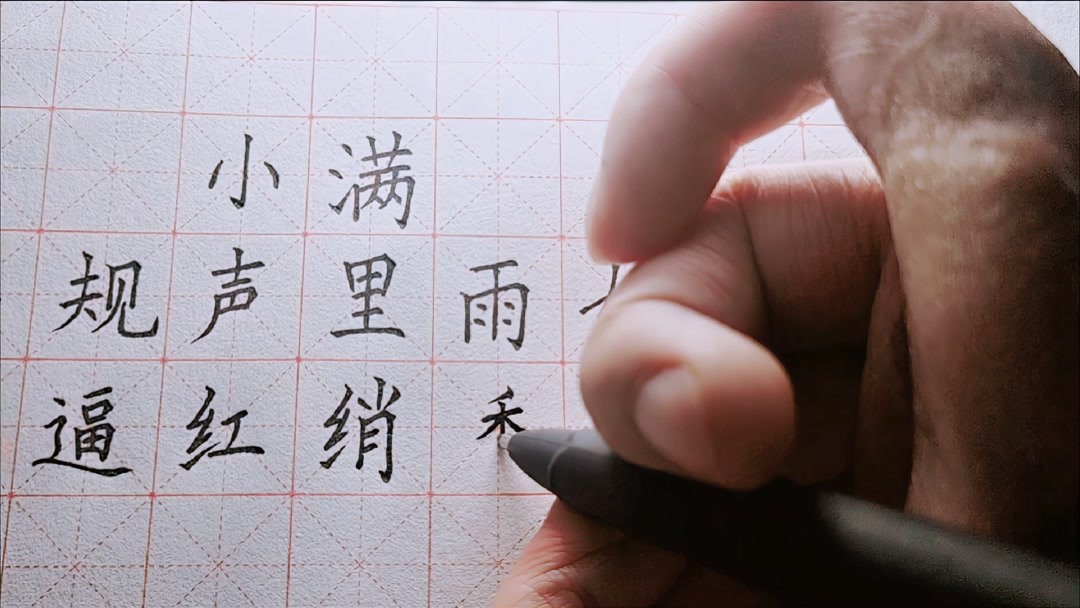 小满
规声里雨
逼红绡禾